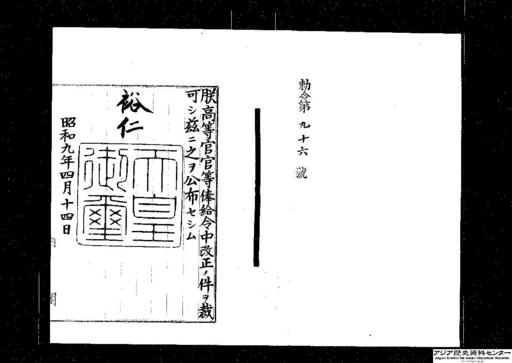 勅令第九十六號
朕高等官官等俸給令中改正ノ件ヲ裁
可シ茲ニ之ヲ公布セシム
裕仁
天皇
御璽
昭和九年四月十四日
アジア歴史資料センター
Japan Center for Asian Historical Records